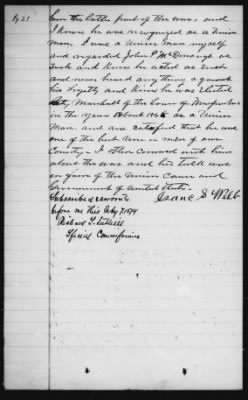 Pg 21
from the latter part of the war, and
I know he was recognized as a Union
man, I was a Union man myself
and regarded John P. McDonough as
such and know he acted as such
and never heard any thing against
his loyalty and know he was Elected
City Marshall of the town of
in the year 1865 as a Union
Man, and am satisfied that he was
one of the best Union men of our
County. I often conversed with him
about the war and his talk was
in favor of the Union cause and
Government of United States.
Subscribed & sworn to
before me this July 7, 1874
Isaac S. Webb
Richard
Special Commissioner